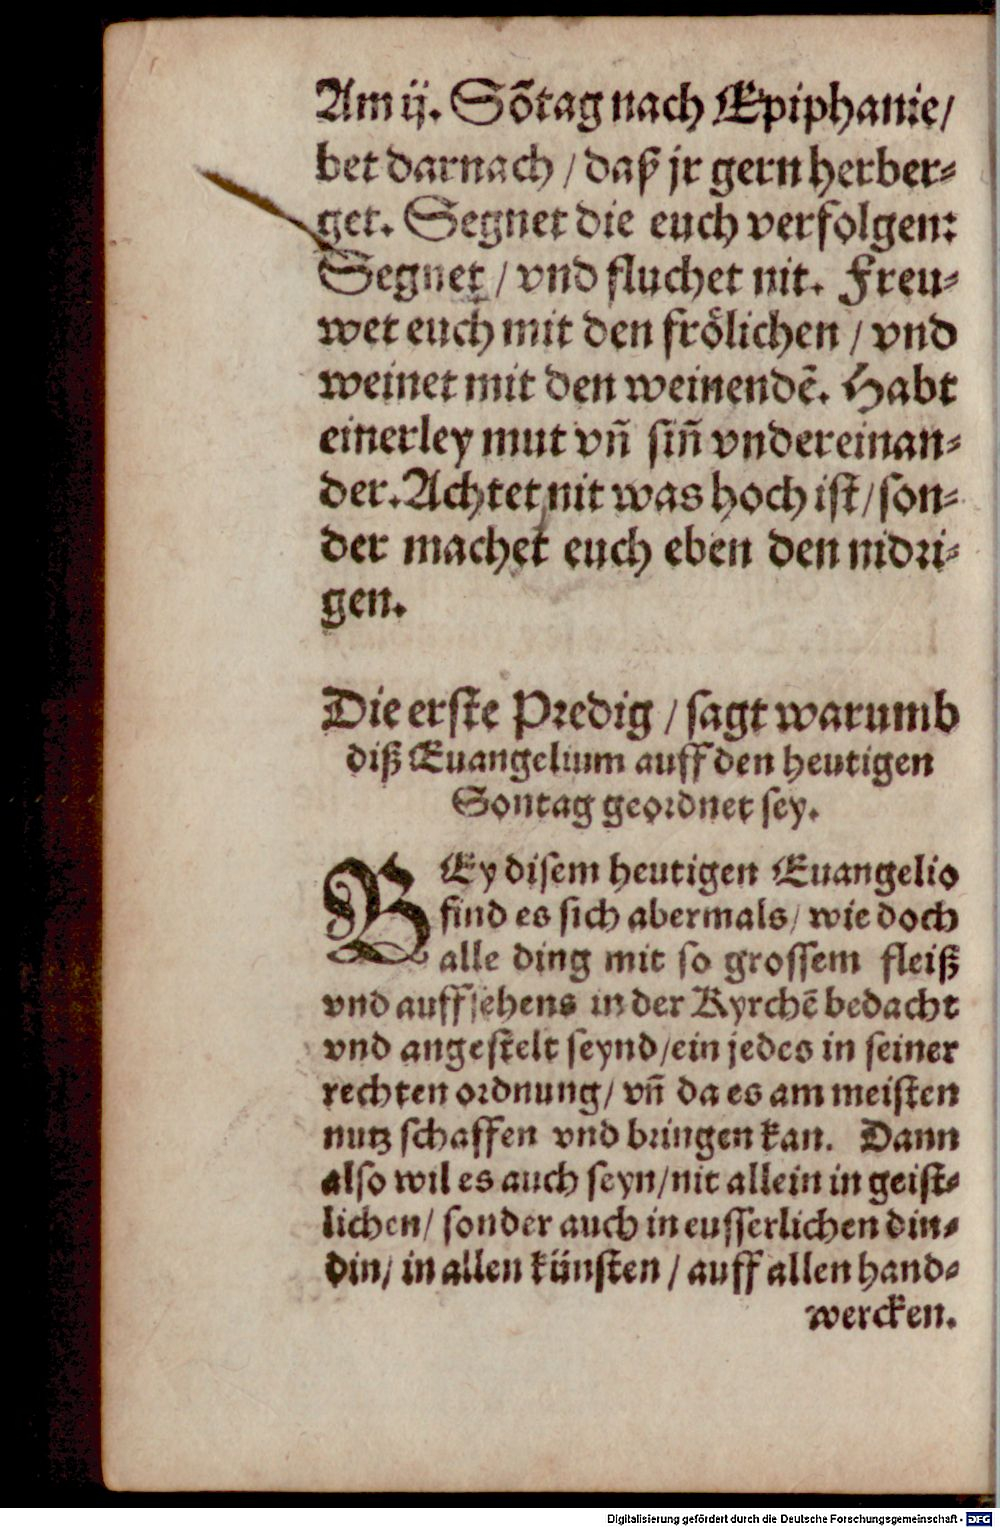 Am ij. Sõtag nach Epiphanie/
bet darnach / daß jr gern herber⸗
get. Segnet die euch verfolgen:
Segnet / vnd fluchet nit. Freu⸗
wet euch mit den frölichen / vnd
weinet mit den weinendẽ. Habt
einerley mut vñ siñ vndereinan⸗
der. Achtet nit was hoch ist / son⸗
der machet euch eben den nidri⸗
gen.
Die erste Predig / sagt warumb
diß Euangelium auff den heutigen
Sontag geordnet sey.
BEy disem heutigen Euangelio
find es sich abermals / wie doch
alle ding mit so grossem fleiß
vnd auffsehens in der Kyrchẽ bedacht
vnd angestelt seynd / ein jedes in seiner
rechten ordnung / vñ da es am meisten
nutz schaffen vnd bringen kan. Dann
also wil es auch seyn / nit allein in geist⸗
lichen / sonder auch in eusserlichen din⸗
din / in allen künsten / auff allen hand⸗
wercken.
Digitalisierung gefördert durch die Deutsche Forschungsgemeinschaft - DFG